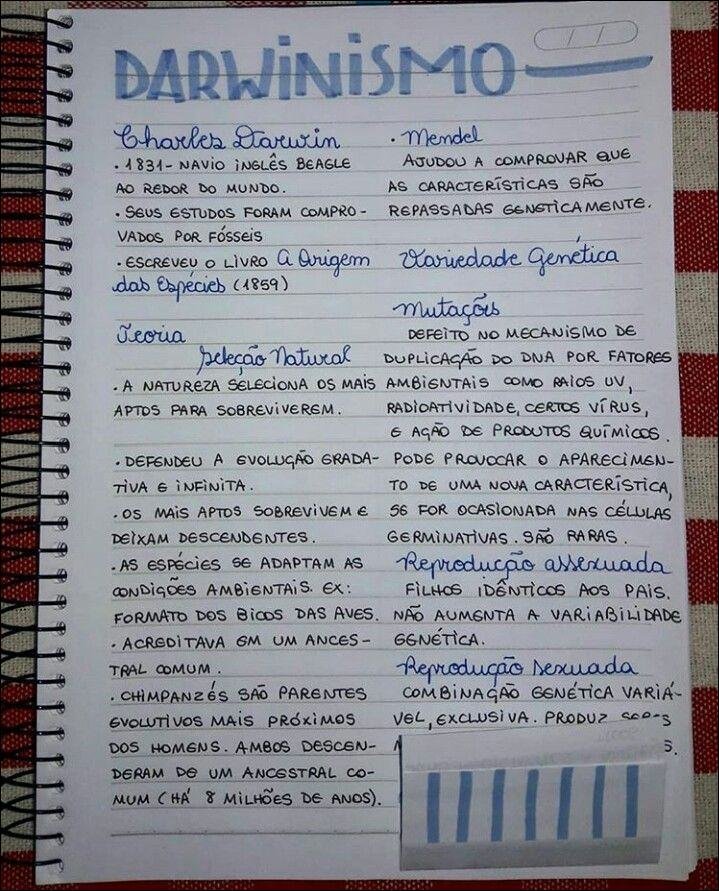 DARWINISMO
/ /
Charles Darwin
· 1831 - NAVIO INGLÊS BEAGLE
AO REDOR DO MUNDO.
· SEUS ESTUDOS FORAM COMPRO-
VADOS POR FÓSSEIS
· ESCREVEU O LIVRO A Origem
das Espécies (1859)
Teoria
Seleção Natural
· A NATUREZA SELECIONA OS MAIS
APTOS PARA SOBREVIVEREM.
· DEFENDEU A EVOLUÇÃO GRADA-
TIVA E INFINITA.
· OS MAIS APTOS SOBREVIVEM E
DEIXAM DESCENDENTES.
· AS ESPÉCIES SE ADAPTAM AS
CONDIÇÕES AMBIENTAIS. EX:
FORMATO DOS BICOS DAS AVES.
· ACREDITAVA EM UM ANCES-
TRAL COMUM.
· CHIMPANZÉS SÃO PARENTES
EVOLUTIVOS MAIS PRÓXIMOS
DOS HOMENS. AMBOS DESCEN-
DERAM DE UM ANCESTRAL CO-
MUM (HÁ 8 MILHÕES DE ANOS).
· Mendel
AJUDOU A COMPROVAR QUE
AS CARACTERÍSTICAS SÃO
REPASSADAS GENETICAMENTE.
Variedade Genética
Mutações
DEFEITO NO MECANISMO DE
DUPLICAÇÃO DO DNA POR FATORES
AMBIENTAIS COMO RAIOS UV,
RADIOATIVIDADE, CERTOS VÍRUS,
E AÇÃO DE PRODUTOS QUÍMICOS.
PODE PROVOCAR O APARECIMEN-
TO DE UMA NOVA CARACTERÍSTICA,
SE FOR OCASIONADA NAS CÉLULAS
GERMINATIVAS. SÃO RARAS.
Reprodução assexuada
FILHOS IDÊNTICOS AOS PAIS.
NÃO AUMENTA A VARIABILIDADE
GENÉTICA.
Reprodução sexuada
COMBINAÇÃO GENÉTICA VARIÁ-
VEL, EXCLUSIVA. PRODUZ